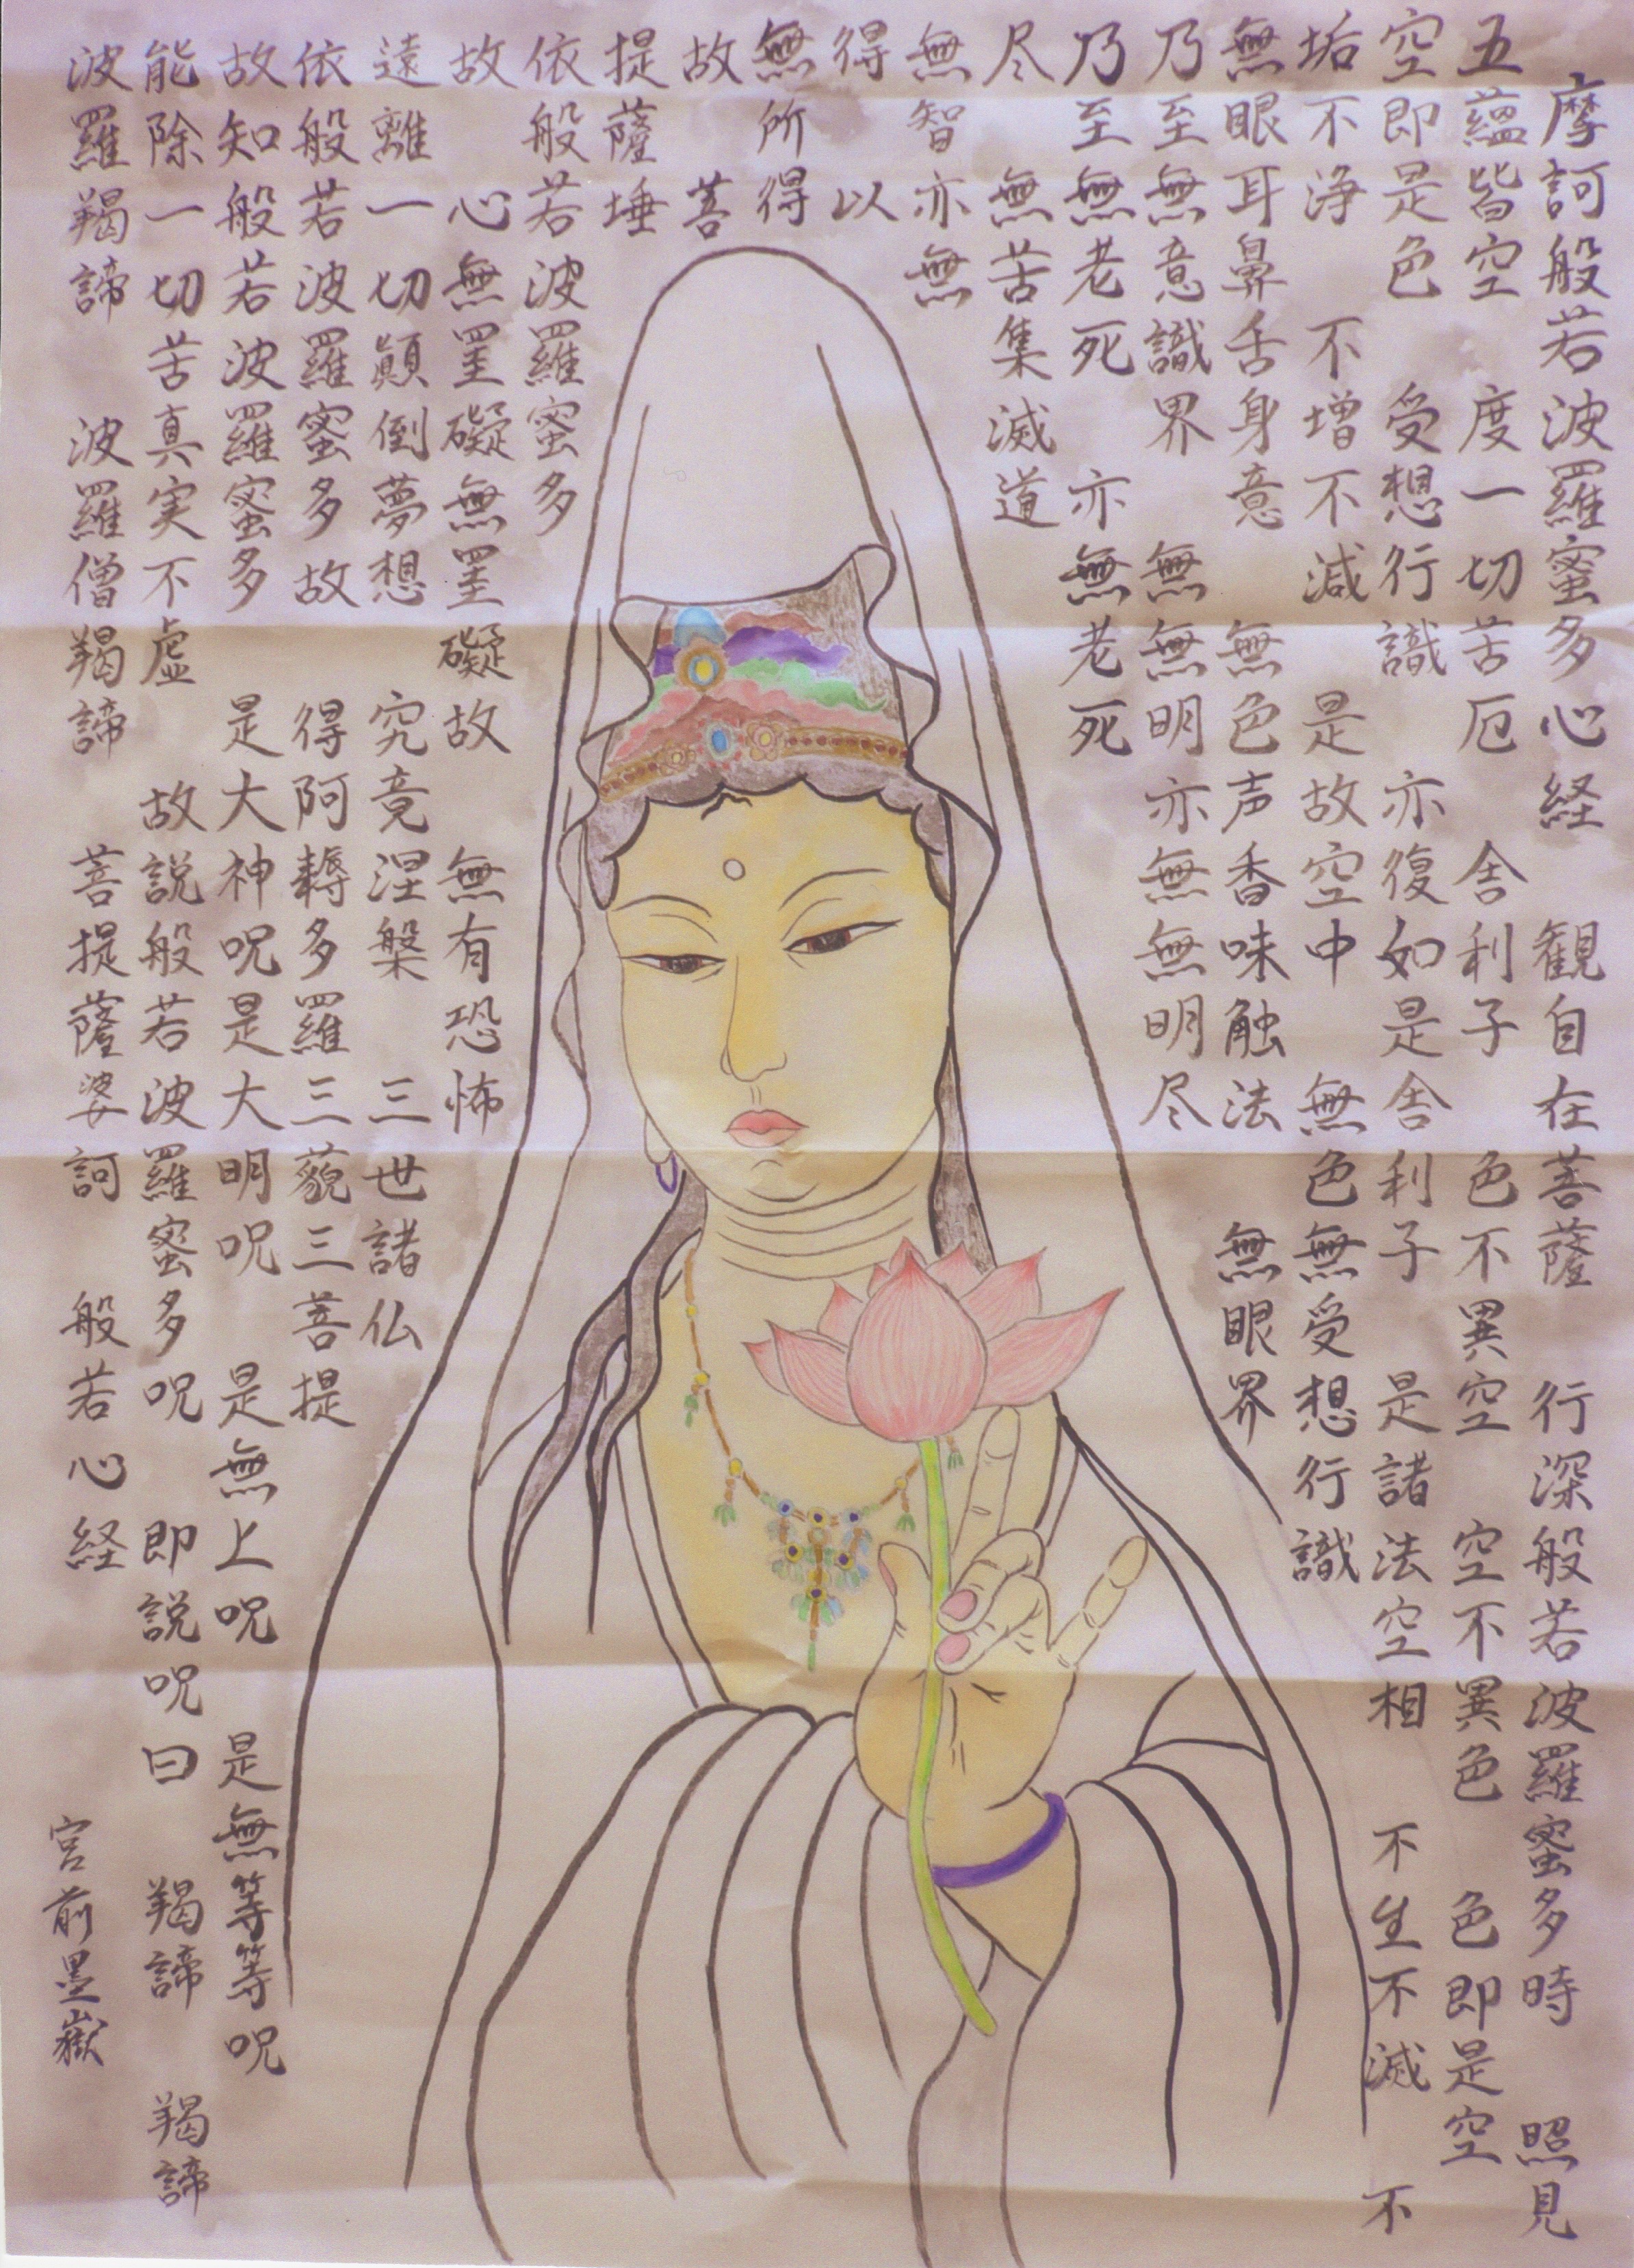 摩訶般若波羅蜜多心経 観自在菩薩 行深般若波羅蜜多時 照見
五蘊皆空 度一切苦厄 舎利子 色不異空 空不異色 色即是空
空即是色 受想行識 亦復如是舎利子 是諸法空相 不生不滅 不
垢不浄 不増不減 是故空中 無色無受想行識
無眼耳鼻舌身意 無色声香味触法 無眼界
乃至無意識界 無無明亦無無明尽
乃至無老死 亦無老死
尽 無苦集滅道
無智亦無
得 以
無所得
故 菩
提薩埵
依般若波羅蜜多
故 心無罣礙無罣礙故 無有恐怖
遠離一切顛倒夢想 究竟涅槃 三世諸仏
依般若波羅蜜多故 得阿耨多羅三藐三菩提
故知般若波羅蜜多 是大神呪是大明呪 是無上呪 是無等等呪
能除一切苦真実不虚 故説般若波羅蜜多呪 即説呪曰 羯諦 羯諦
波羅羯諦 波羅僧羯諦 菩提薩婆訶 般若心経
宮前墨嶽